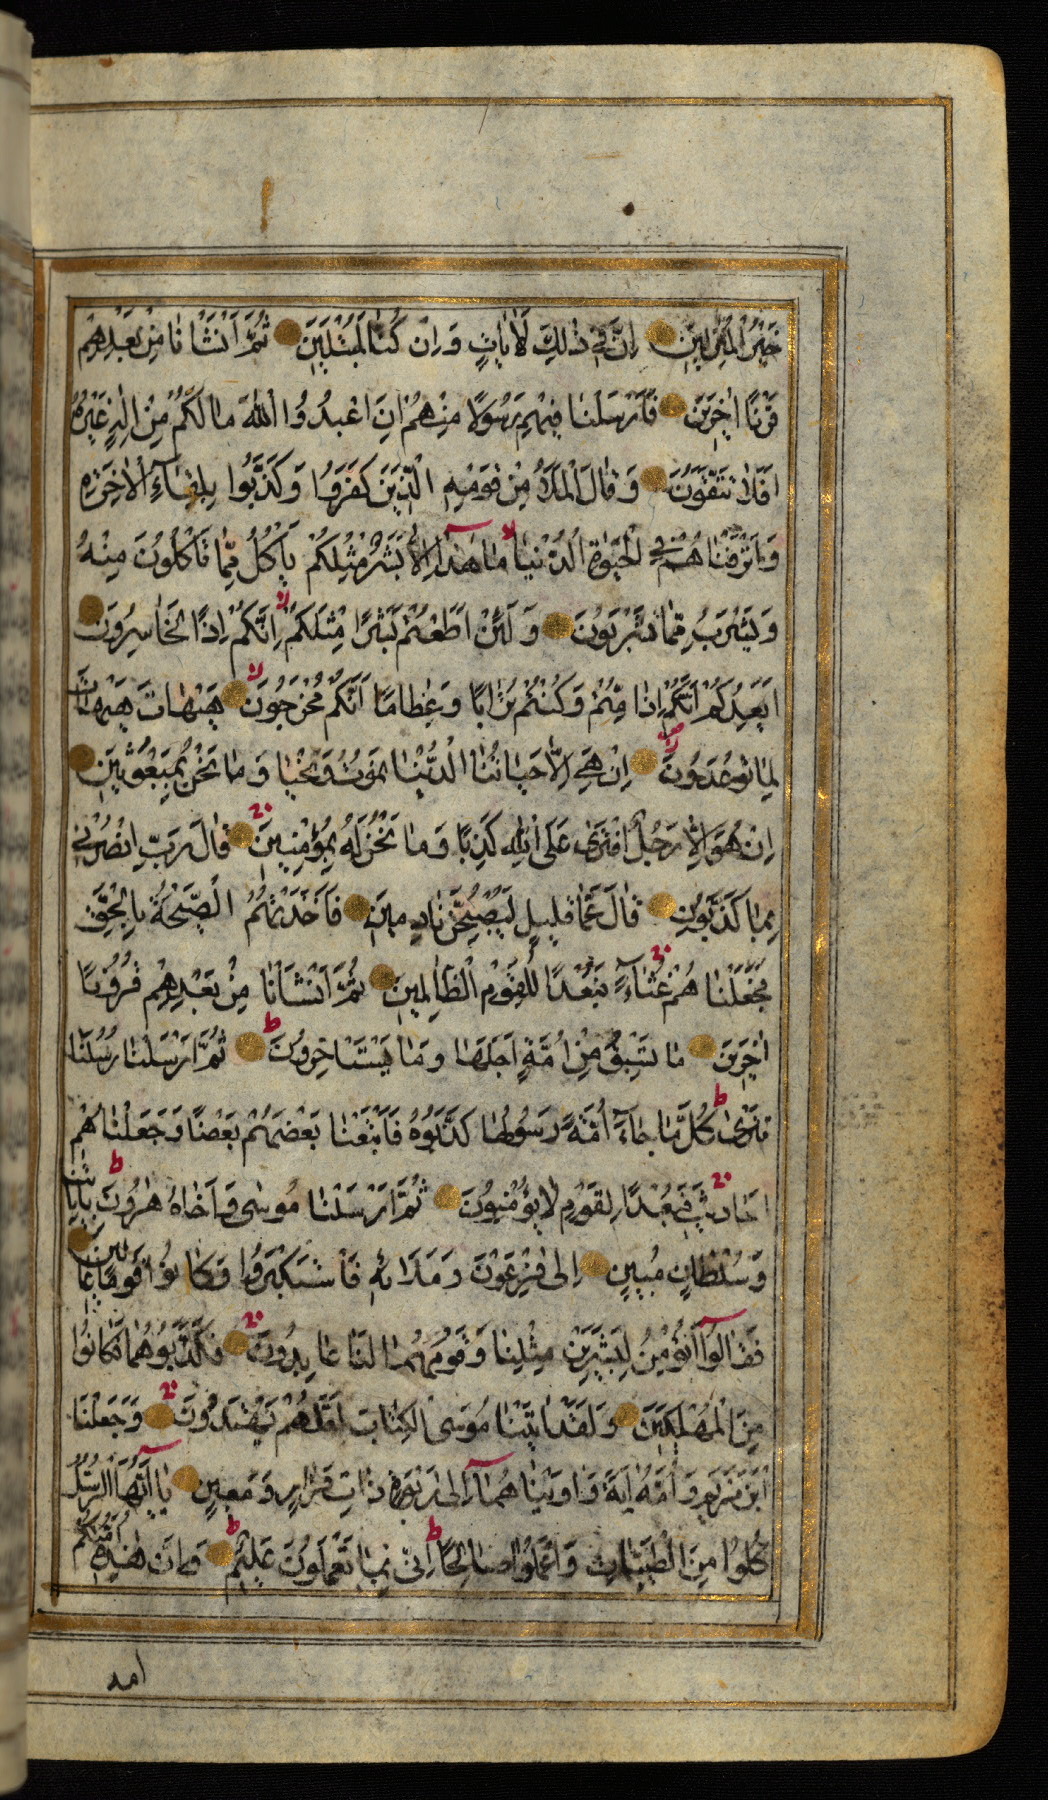 خَيْرُ الْمُنْزِلِينَ اِنَّ فِي ذٰلِكَ لَاٰيَاتٍ وَاِنْ كُنَّا لَمُبْتَلِينَ ثُمَّ اَنْشَاْنَا مِنْ بَعْدِهِمْ
قَرْنًا اٰخَرِينَ فَاَرْسَلْنَا فِيهِمْ رَسُولًا مِنْهُمْ اَنِ اعْبُدُوا اللّٰهَ مَا لَكُمْ مِنْ اِلٰهٍ غَيْرُهُ
اَفَلَا تَتَّقُونَ وَقَالَ الْمَلَاُ مِنْ قَوْمِهِ الَّذِينَ كَفَرُوا وَكَذَّبُوا بِلِقَاۤءِ الْاٰخِرَةِ
وَاَتْرَفْنَاهُمْ فِي الْحَيٰوةِ الدُّنْيَا مَا هٰذَاۤ اِلَّا بَشَرٌ مِثْلُكُمْ يَاْكُلُ مِمَّا تَاْكُلُونَ مِنْهُ
وَيَشْرَبُ مِمَّا تَشْرَبُونَ وَلَئِنْ اَطَعْتُمْ بَشَرًا مِثْلَكُمْ اِنَّكُمْ اِذًا لَخَاسِرُونَ
اَيَعِدُكُمْ اَنَّكُمْ اِذَا مِتُّمْ وَكُنْتُمْ تُرَابًا وَعِظَامًا اَنَّكُمْ مُخْرَجُونَ هَيْهَاتَ هَيْهَاتَ
لِمَا تُوعَدُونَ اِنْ هِيَ اِلَّا حَيَاتُنَا الدُّنْيَا نَمُوتُ وَنَحْيَا وَمَا نَحْنُ بِمَبْعُوثِينَ
اِنْ هُوَ اِلَّا رَجُلٌ افْتَرٰى عَلَى اللّٰهِ كَذِبًا وَمَا نَحْنُ لَهُ بِمُؤْمِنِينَ قَالَ رَبِّ انْصُرْنِي
بِمَا كَذَّبُونِ قَالَ عَمَّا قَلِيلٍ لَيُصْبِحُنَّ نَادِمِينَ فَاَخَذَتْهُمُ الصَّيْحَةُ بِالْحَقِّ
فَجَعَلْنَاهُمْ غُثَاۤءً فَبُعْدًا لِلْقَوْمِ الظَّالِمِينَ ثُمَّ اَنْشَاْنَا مِنْ بَعْدِهِمْ قُرُونًا
اٰخَرِينَ مَا تَسْبِقُ مِنْ اُمَّةٍ اَجَلَهَا وَمَا يَسْتَاْخِرُونَ ثُمَّ اَرْسَلْنَا رُسُلَنَا
تَتْرٰى كُلَّمَا جَاۤءَ اُمَّةً رَسُولُهَا كَذَّبُوهُ فَاَتْبَعْنَا بَعْضَهُمْ بَعْضًا وَجَعَلْنَاهُمْ
اَحَادِيثَ فَبُعْدًا لِقَوْمٍ لَا يُؤْمِنُونَ ثُمَّ اَرْسَلْنَا مُوسٰى وَاَخَاهُ هٰرُونَ بِاٰيَاتِنَا
وَسُلْطَانٍ مُبِينٍ اِلٰى فِرْعَوْنَ وَمَلَائِهِ فَاسْتَكْبَرُوا وَكَانُوا قَوْمًا عَالِينَ
فَقَالُوۤا اَنُؤْمِنُ لِبَشَرَيْنِ مِثْلِنَا وَقَوْمُهُمَا لَنَا عَابِدُونَ فَكَذَّبُوهُمَا فَكَانُوا
مِنَ الْمُهْلَكِينَ وَلَقَدْ اٰتَيْنَا مُوسَى الْكِتَابَ لَعَلَّهُمْ يَهْتَدُونَ وَجَعَلْنَا
ابْنَ مَرْيَمَ وَاُمَّهُ اٰيَةً وَاٰوَيْنَاهُمَاۤ اِلٰى رَبْوَةٍ ذَاتِ قَرَارٍ وَمَعِينٍ يَاۤ اَيُّهَا الرُّسُلُ
كُلُوا مِنَ الطَّيِّبَاتِ وَاعْمَلُوا صَالِحًا اِنِّي بِمَا تَعْمَلُونَ عَلِيمٌ وَاِنَّ هٰذِهِ اُمَّتُكُمْ
امة